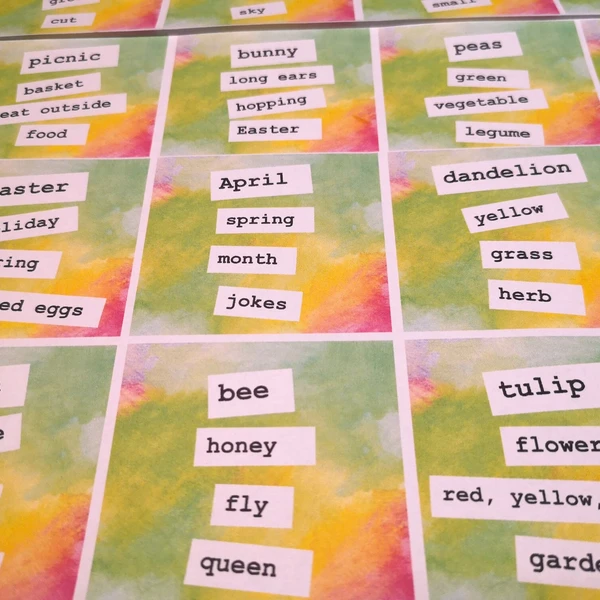 cut
sky
small
picnic
basket
eat outside
food
bunny
long ears
hopping
Easter
peas
green
vegetable
legume
aster
liday
ring
ed eggs
April
spring
month
jokes
dandelion
yellow
grass
herb
bee
honey
fly
queen
tulip
flower
red, yellow,
garde